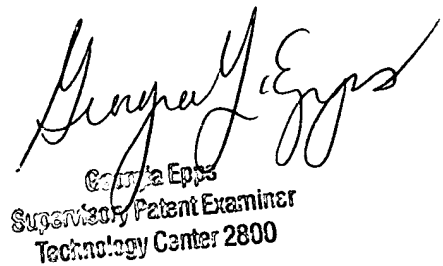 Georgia Y. Epps
Georgia Epps
Supervisory Patent Examiner
Technology Center 2800